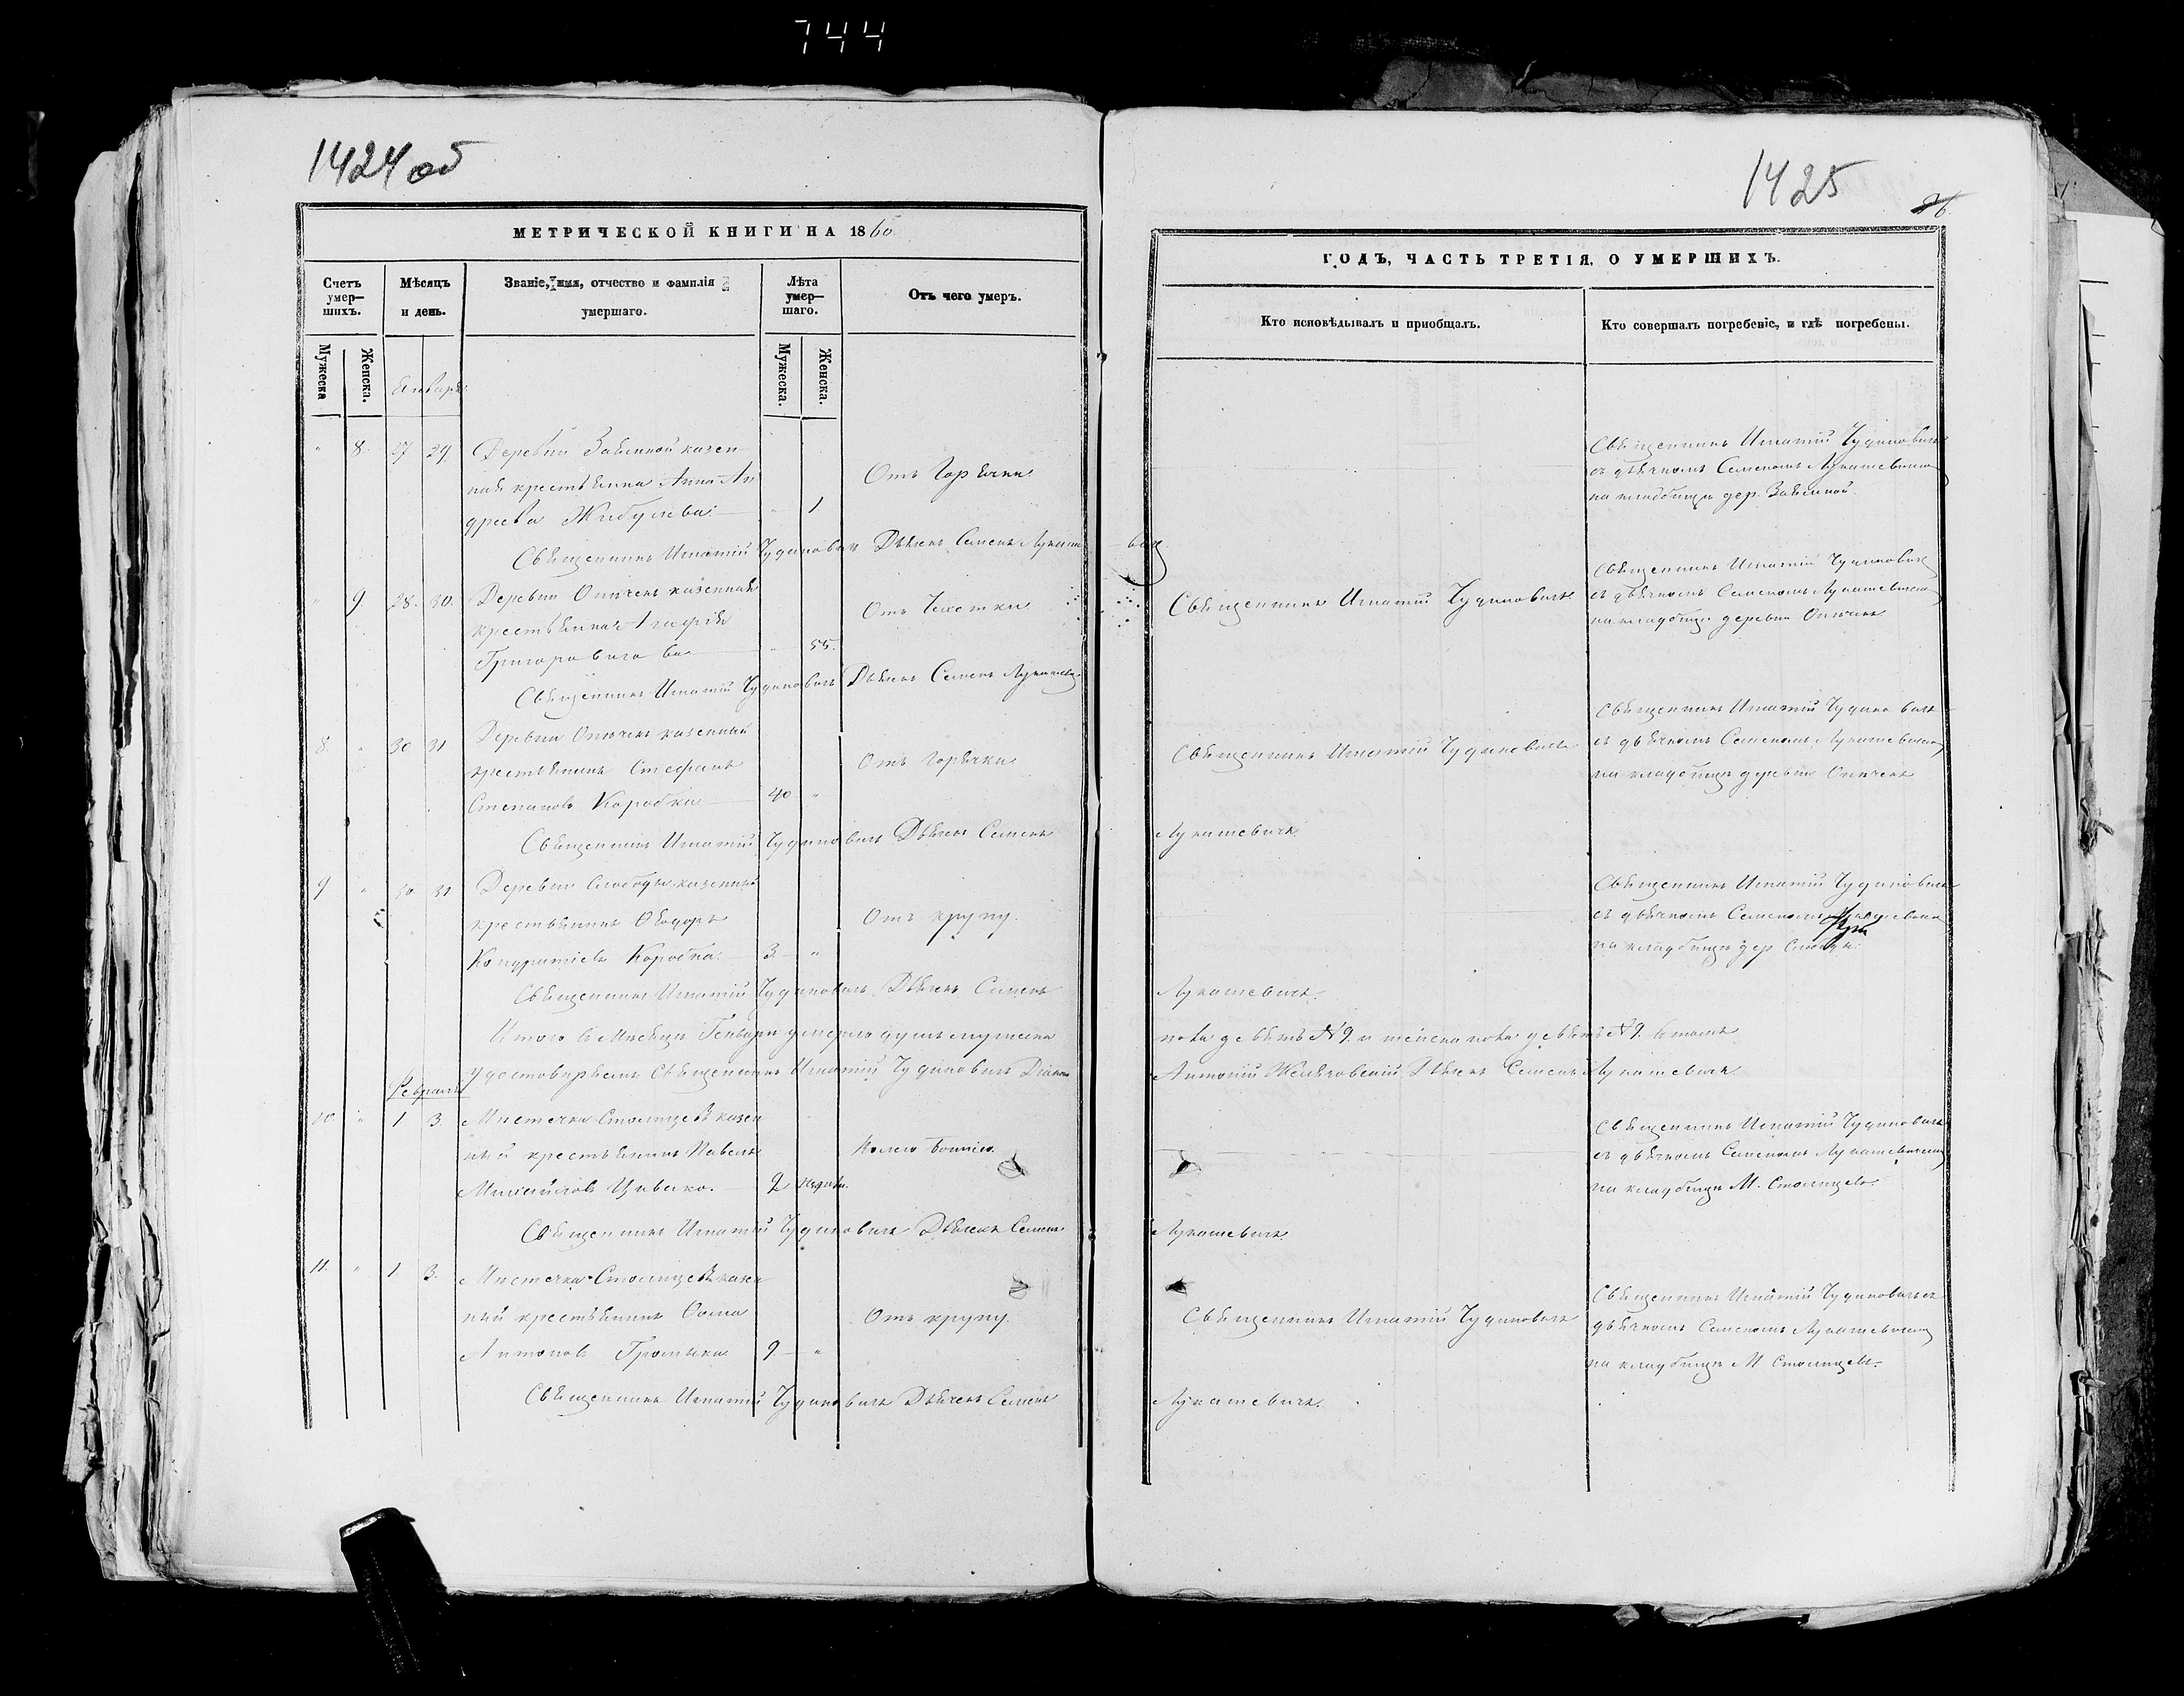 744
1424 об
1425
26.
МЕТРИЧЕСКОЙ КНИГИ НА 1860
ГОДЪ, ЧАСТЬ ТРЕТІЯ, О УМЕРШИХЪ.
Счетъ умер—шихъ.
Мѣсяцъ и день.
Званіе, имя, отчество и фамилія умершаго.
Лѣта умер—шаго.
Отъ чего умеръ.
Кто исповѣдывалъ и пріобщалъ.
Кто совершалъ погребеніе, и гдѣ погребены.
Мужеска
Женска.
Мужеска.
Женска.
Января
" 8. 27 29 Деревни казен
ная крестьянка Анна Ан
дреева " 1
Отъ Горячки
Священникъ Игнатій Чудиновичъ
съ дьячкомъ Семеномъ Лукашевичемъ
на кладбищѣ дер.
Священникъ Игнатій Чудиновичъ Дьячекъ Семенъ Лукашевичъ
" 9 28. 30. Деревни казенная
крестьянка Агафія
" 55.
Отъ Чахотки
Священникъ Игнатій Чудиновичъ
Священникъ Игнатій Чудиновичъ
съ дьячкомъ Семеномъ Лукашевичемъ
на кладбищѣ деревни
Священникъ Игнатій Чудиновичъ Дьячекъ Семенъ Лукашевичъ
8. " 30 31 Деревни казенный
крестьянинъ Стефанъ
Степановъ Коробка 40 "
Отъ горячки
Священникъ Игнатій Чудиновичъ
Священникъ Игнатій Чудиновичъ
съ дьячкомъ Семеномъ Лукашевичемъ
на кладбищѣ деревни
Священникъ Игнатій Чудиновичъ Дьячекъ Семенъ Лукашевичъ
9 " 30 31 Деревни Слободы казенный
крестьянинъ Ѳеодоръ
Кондратіевъ Коробка. 3. "
Отъ крупу.
Священникъ Игнатій Чудиновичъ
съ дьячкомъ Семеномъ
на кладбищѣ дер.
Священникъ Игнатій Чудиновичъ Дьячекъ Семенъ Лукашевичъ.
Итого въ Мѣсяцѣ Генварѣ умерло душъ мужеска пола девять №9. и женска пола девять №9.
Священникъ Игнатій Чудиновичъ Діаконъ Антоній Дьячекъ Семенъ Лукашевичъ
Февраль
10. " 1 3. Мѣстечка казен
ный крестьянинъ Павелъ
Михайловъ 2 недѣли.
Священникъ Игнатій Чудиновичъ
съ дьячкомъ Семеномъ Лукашевичемъ
на кладбищѣ М.
Священникъ Игнатій Чудиновичъ Дьячекъ Семенъ Лукашевичъ
11. " 1 3. Мѣстечка казен
ный крестьянинъ Ѳома
Антоновъ Громыка 9 "
Отъ крупу.
Священникъ Игнатій Чудиновичъ
Священникъ Игнатій Чудиновичъ съ
дьячкомъ Семеномъ Лукашевичемъ
на кладбищѣ М
Священникъ Игнатій Чудиновичъ Дьячекъ Семенъ Лукашевичъ.